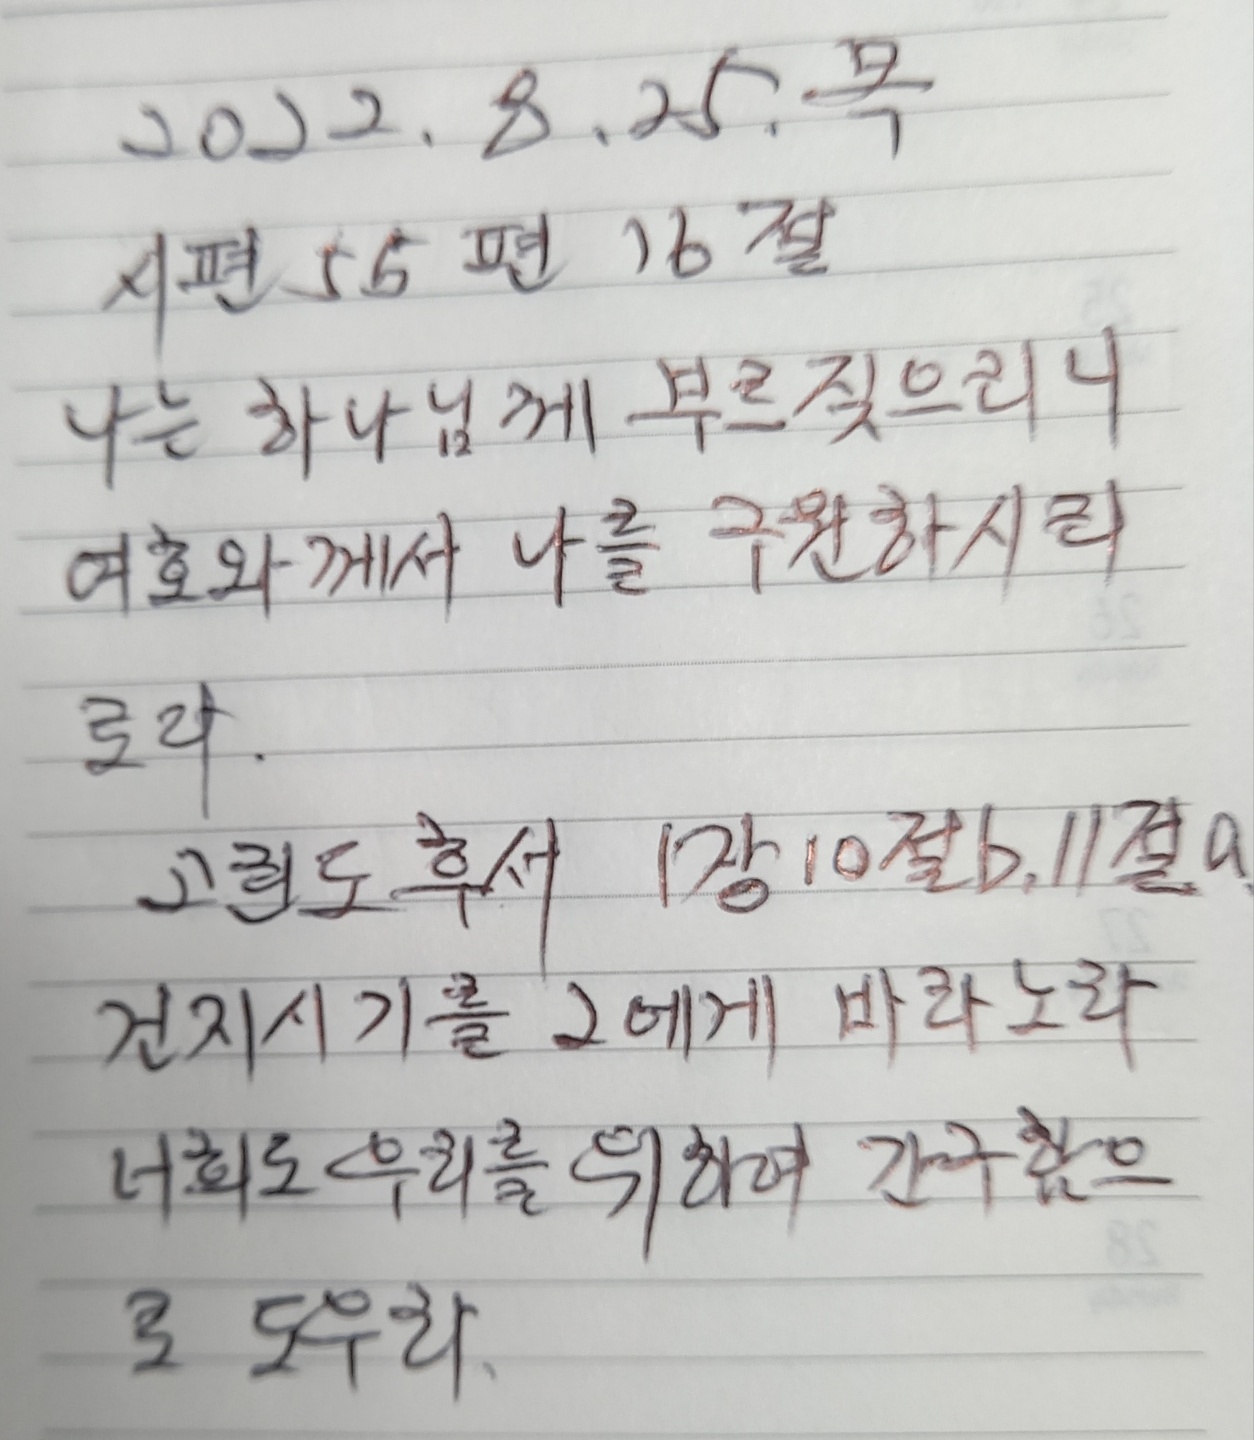 2022. 8. 25. 목
시편 55편 16절
나는 하나님께 부르짖으리니
여호와께서 나를 구원하시리
로라.
고린도후서 1장 10절b. 11절a.
건지시기를 그에게 바라노라
너희도 우리를 위하여 간구함으
로 도우라.